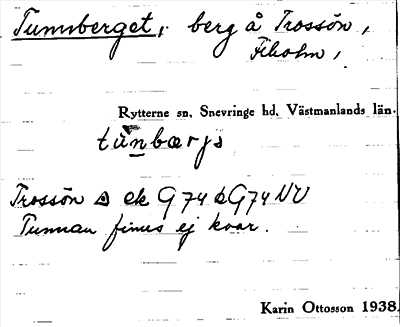 Tunnberget, berg å Trossön,
Fiholm,
Rytterne sn. Snevringe hd. Västmanlands län.
Trossön ek G 74 d G 74 NV
Tunnan finns ej kvar.
Karin Ottosson 1938.